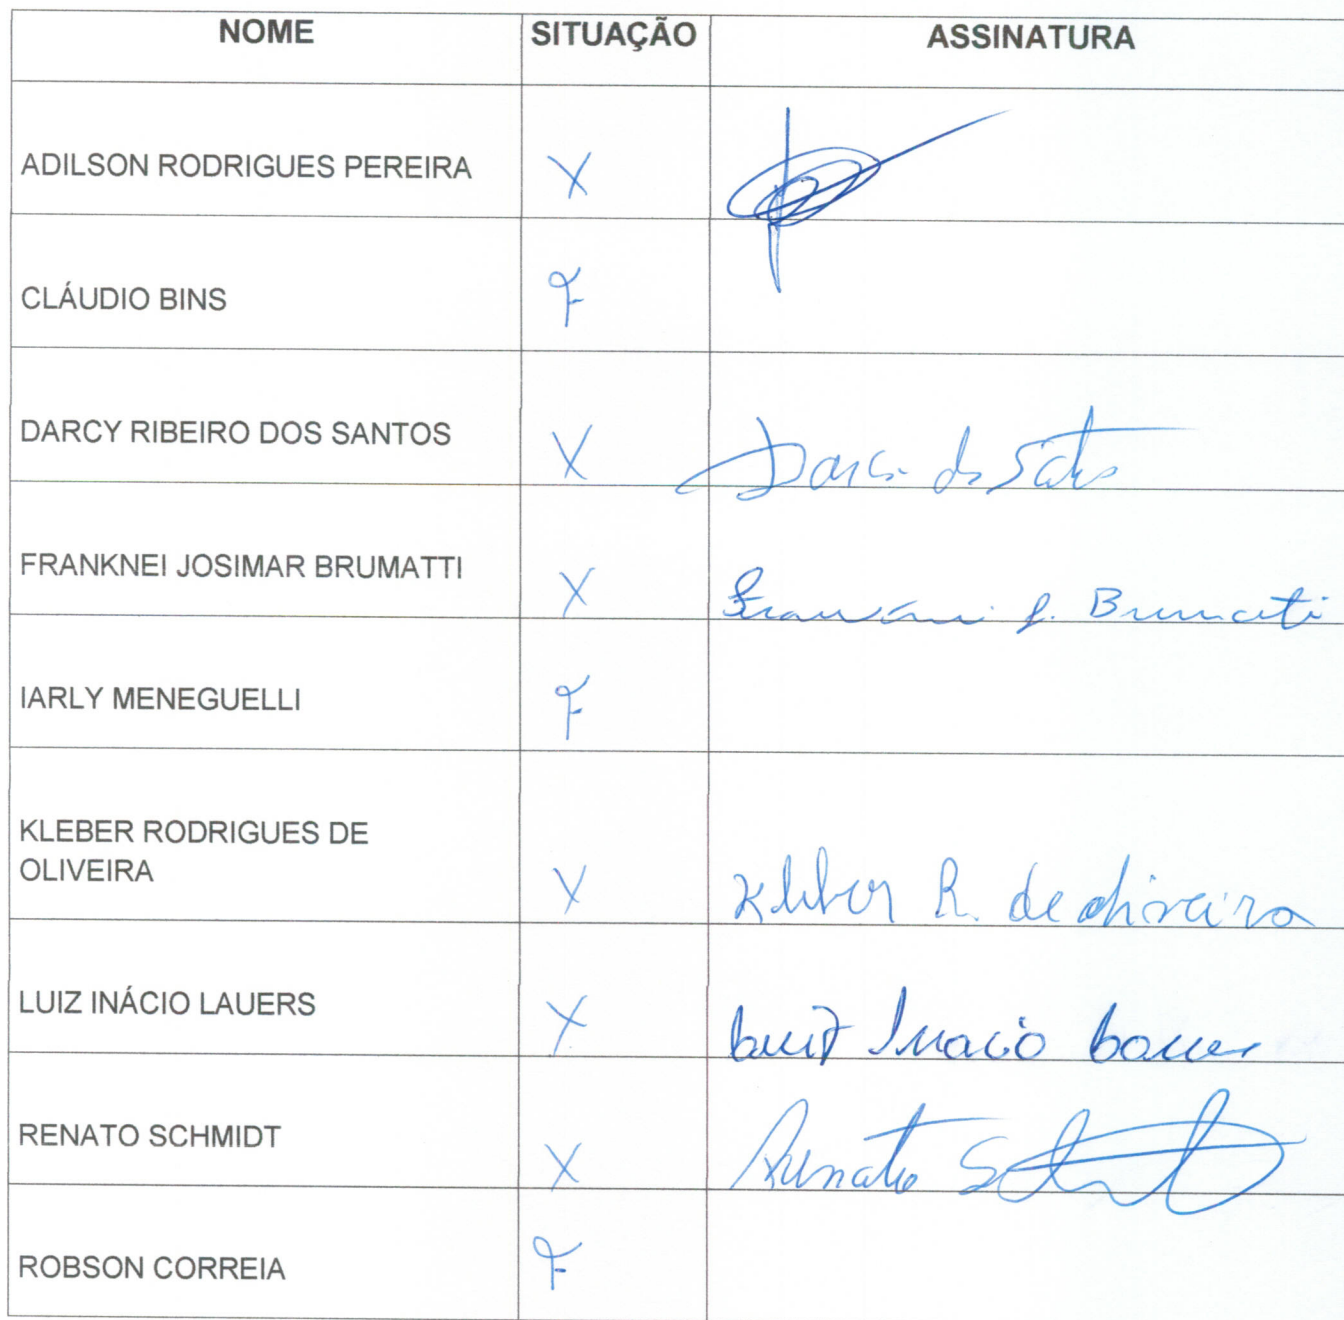 NOME SITUAÇÃO ASSINATURA
ADILSON RODRIGUES PEREIRA X
CLÁUDIO BINS F
DARCY RIBEIRO DOS SANTOS X Darci dos Santos
FRANKNEI JOSIMAR BRUMATTI X J. Brumatti
IARLY MENEGUELLI F
KLEBER RODRIGUES DE
OLIVEIRA X Kleber R. de oliveira
LUIZ INÁCIO LAUERS X Luiz Inacio Lauer
RENATO SCHMIDT X Renato
ROBSON CORREIA F